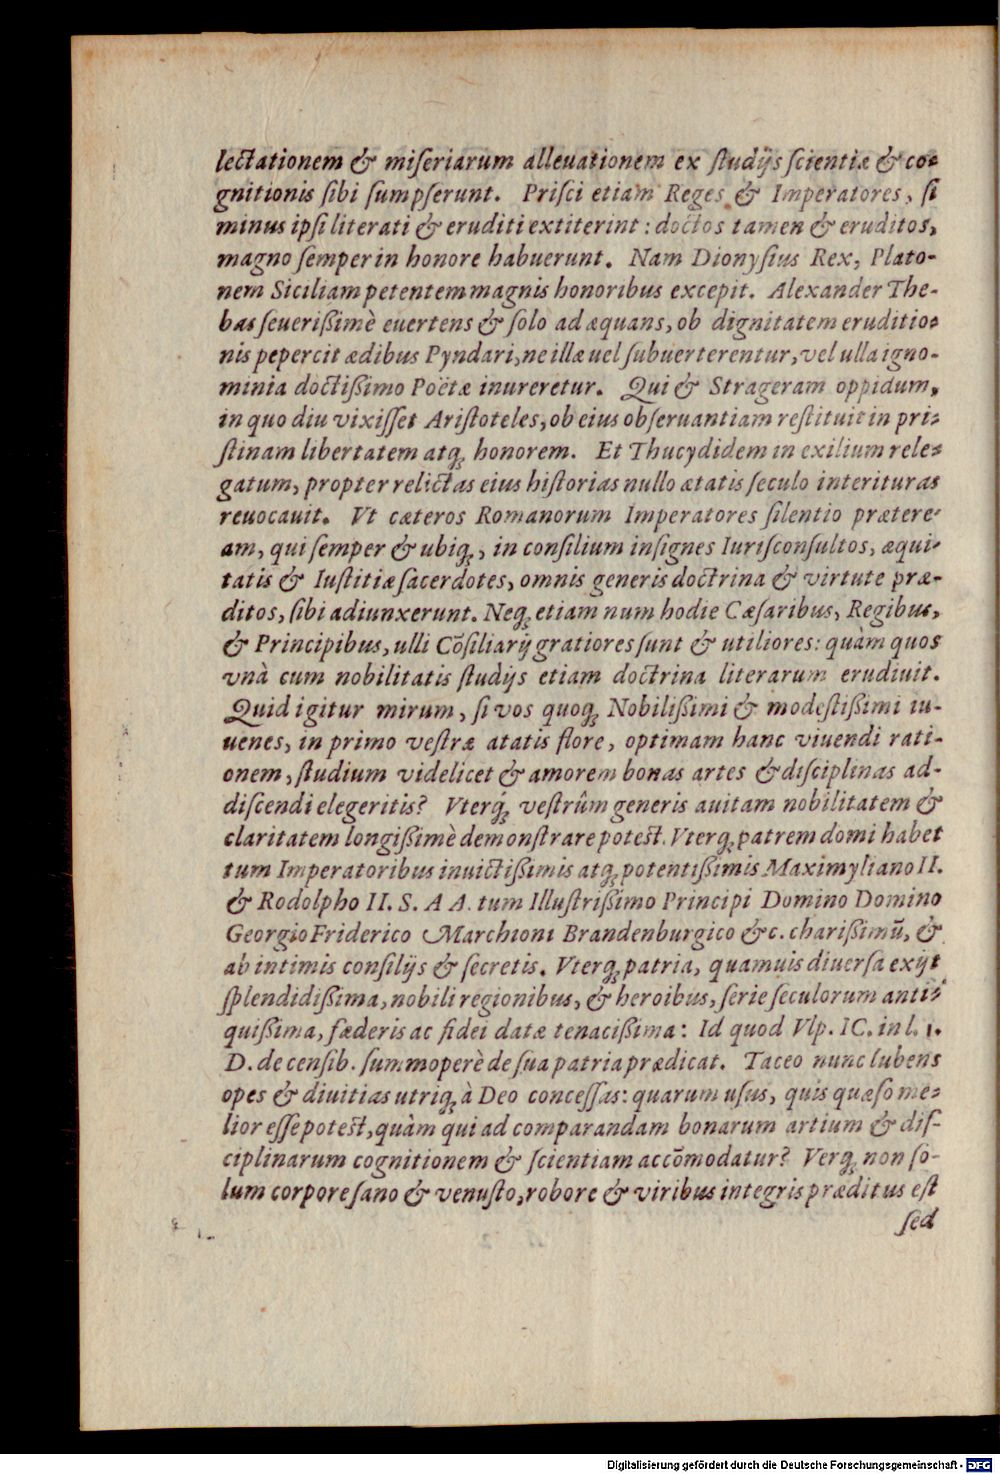 lectationem & miſeriarum alleuationem ex ſtudijs ſcientiæ & co-
gnitionis ſibi ſumpſerunt. Priſci etiam Reges & Imperatores, ſi
minus ipſi literati & eruditi extiterint: doctos tamen & eruditos,
magno ſemper in honore habuerunt. Nam Dionyſius Rex, Plato-
nem Siciliam petentem magnis honoribus excepit. Alexander The-
bas ſeuerißimè euertens & ſolo adæquans, ob dignitatem eruditio-
nis pepercit ædibus Pyndari, ne illæ uel ſubuerterentur, vel ulla igno-
minia doctißimo Poëtæ inureretur. Qui & Strageram oppidum,
in quo diu vixiſſet Ariſtoteles, ob eius obſeruantiam reſtituit in pri-
ſtinam libertatem atq́; honorem. Et Thucydidem in exilium rele-
gatum, propter relictas eius hiſtorias nullo ætatis ſeculo interituras
reuocauit. Vt cæteros Romanorum Imperatores ſilentio prætere-
am, qui ſemper & ubiq;, in conſilium inſignes Iuriſconſultos, æqui-
tatis & Iuſtitiæ ſacerdotes, omnis generis doctrina & virtute præ-
ditos, ſibi adiunxerunt. Neq; etiam num hodie Cæſaribus, Regibus,
& Principibus, ulli Cõſiliarij gratiores ſunt & utiliores: quàm quos
vnà cum nobilitatis ſtudijs etiam doctrina literarum erudiuit.
Quid igitur mirum, ſi vos quoq; Nobilißimi & modeſtißimi iu-
uenes, in primo veſtræ ætatis flore, optimam hanc viuendi rati-
onem, ſtudium videlicet & amorem bonas artes & diſciplinas ad-
diſcendi elegeritis? Vterq́; veſtrûm generis auitam nobilitatem &
claritatem longißimè demonſtrare poteſt. Vterq; patrem domi habet
tum Imperatoribus inuictißimis atq; potentißimis Maximyliano II.
& Rodolpho II. S. A A. tum Illuſtrißimo Principi Domino Domino
Georgio Friderico Marchioni Brandenburgico &c. charißimũ, &
ab intimis conſilijs & ſecretis. Vterq; patria, quamuis diuerſa exijt
ſplendidißima, nobili regionibus, & heroibus, ſerie ſeculorum anti-
quißima, fæderis ac fidei datæ tenacißima: Id quod Vlp. IC. in l. 1.
D. de cenſib. ſummoperè de ſua patria prædicat. Taceo nunc lubens
opes & diuitias utriq; à Deo conceſſas: quarum uſus, quis quæſo me-
lior eſſe poteſt, quàm qui ad comparandam bonarum artium & diſ-
ciplinarum cognitionem & ſcientiam accõmodatur? Verq; non ſo-
lum corpore ſano & venuſto, robore & viribus integris præditus eſt
ſed
Digitalisierung gefördert durch die Deutsche Forschungsgemeinschaft - DFG